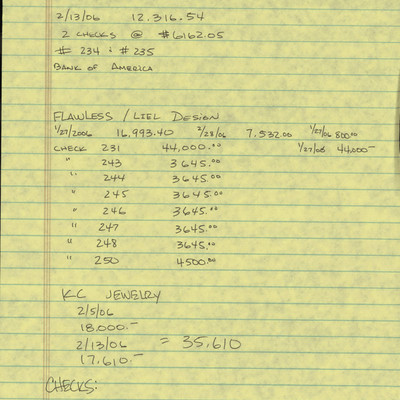 2/13/06 12,316.54
2 CHECKS @ $6162.05
# 234 & # 235
BANK OF AMERICA
FLAWLESS / LIEL DESIGN
1/27/2006 16,993.40 2/28/06 7,532.00 1/27/06 800.00
CHECK 231 44,000.00 1/27/06 44,000-
" 243 3645.00
" 244 3645.00
" 245 3645.00
" 246 3645.00
" 247 3645.00
" 248 3645.00
" 250 4500.00
KC JEWELRY
2/5/06
18,000.-
2/13/06 = 35,610
17,610.-
CHECKS: